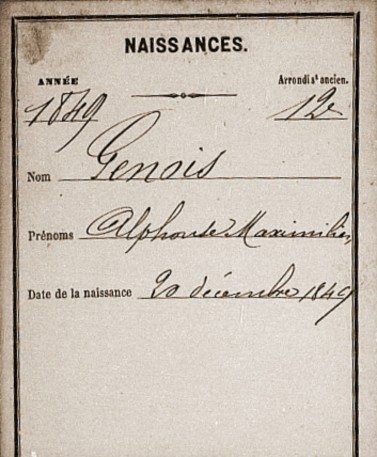 NAISSANCES.
ANNÉE Arrondist ancien.
1849 12e
Nom Genois
Prénoms Alphonse Maximilien
Date de la naissance 20 décembre 1849